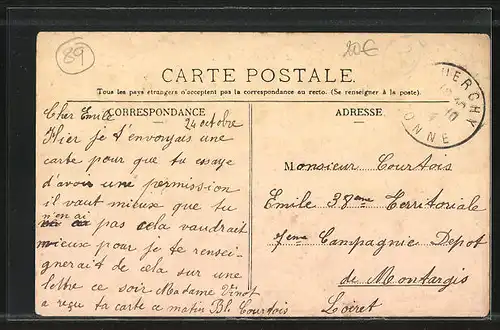 89
20€
CARTE POSTALE.
Tous les pays étrangers n'acceptent pas la correspondance au recto. (Se renseigner à la poste).
CORRESPONDANCE
ADRESSE
MERCHY
YONNE
Cher Emile
24 octobre
Hier je t'envoyais une
carte pour que tu essaye
d'avoir une permission
il vaut mieux que tu
n'en ai pas cela vaudrait
mieux pour je te rensei-
gnerait de cela sur une
lettre ce soir Madame Vinot
a reçu ta carte ce matin Bl. Courtois
Monsieur Courtois
Emile 38eme Territoriale
7eme Campagnie Depot
de Montargis
Loiret